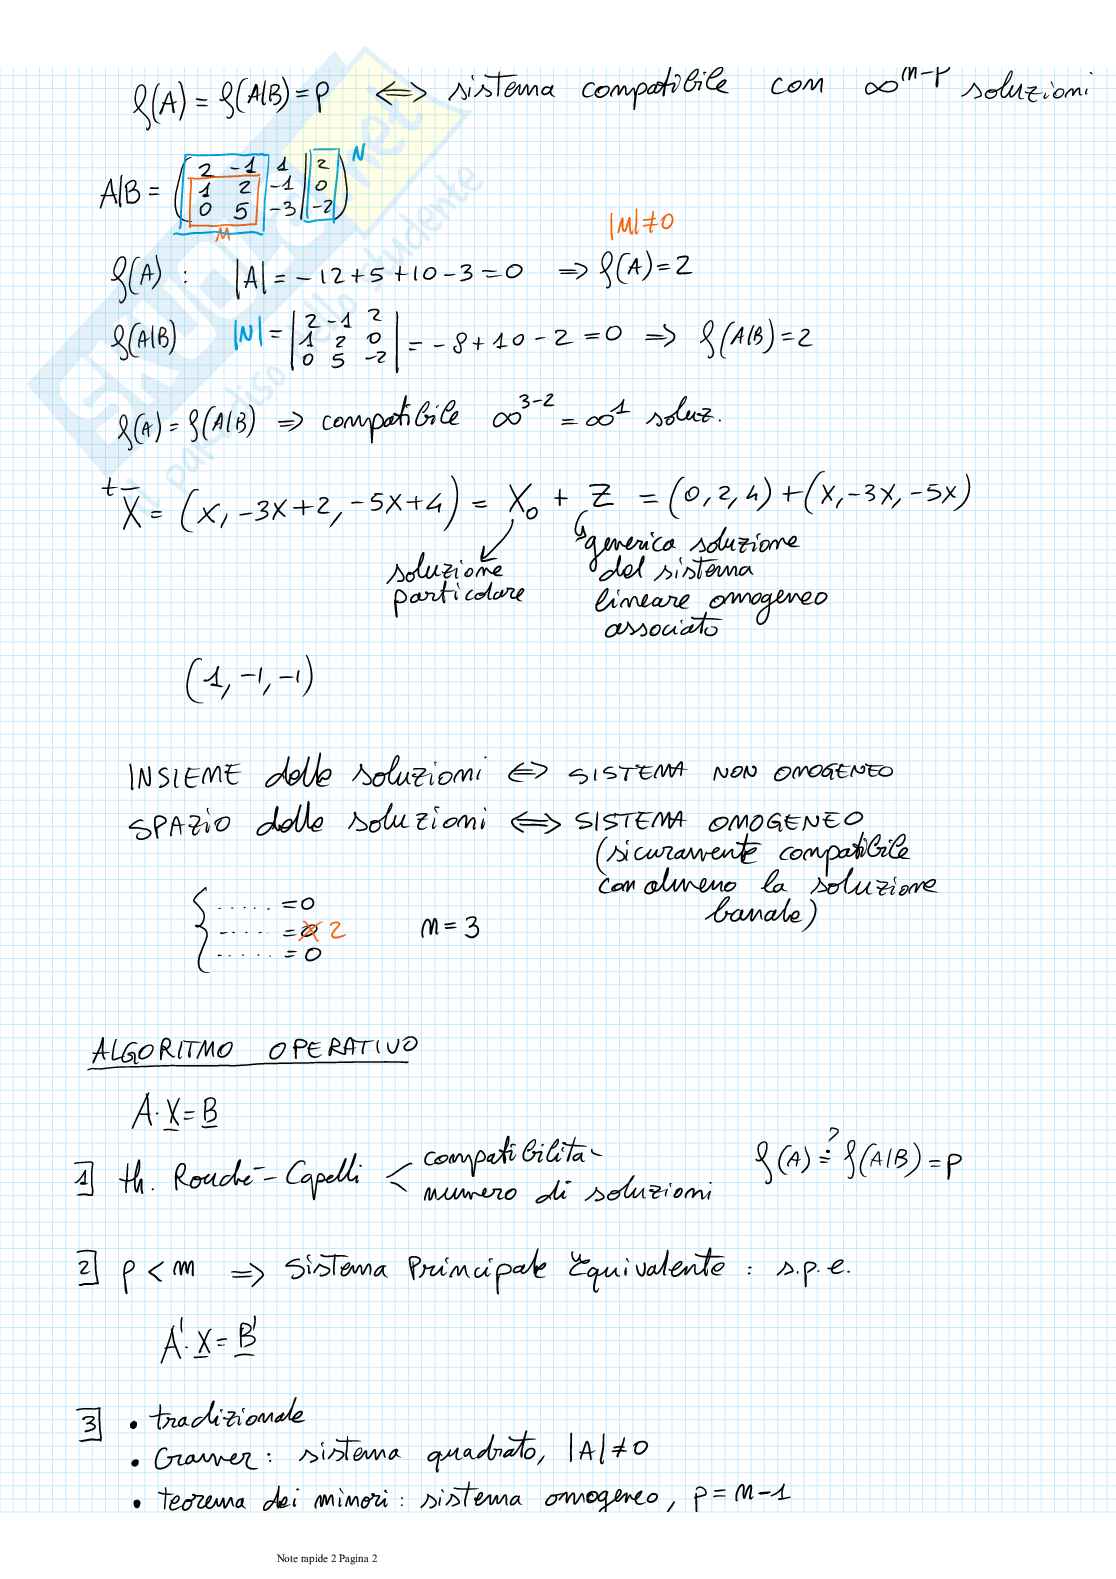 ρ(A) = ρ(A|B) = p ⟺ sistema compatibile con ∞^(n-p) soluzioni
A|B = ( 2 -1 1 | 2 ) N
1 2 -1 | 0
0 5 -3 | -2
M
|M| ≠ 0
ρ(A) : |A| = -12 + 5 + 10 - 3 = 0 ⇒ ρ(A) = 2
ρ(A|B) |N| = | 2 -1 2 | = -8 + 10 - 2 = 0 ⇒ ρ(A|B) = 2
1 2 0
0 5 -2
ρ(A) = ρ(A|B) ⇒ compatibile ∞^(3-2) = ∞^1 soluz.
ᵗX̄ = (x, -3x+2, -5x+4) = X₀ + Z = (0, 2, 4) + (x, -3x, -5x)
soluzione particolare
generica soluzione
del sistema
lineare omogeneo
associato
(1, -1, -1)
INSIEME delle soluzioni ⟺ SISTEMA NON OMOGENEO
SPAZIO delle soluzioni ⟺ SISTEMA OMOGENEO
(sicuramente compatibile
con almeno la soluzione
banale)
{ ..... = 0
..... = 0 2 n = 3
...... = 0
ALGORITMO OPERATIVO
A·X = B
1] th. Rouché-Capelli < compatibilità ρ(A) ≟ ρ(A|B) = p
numero di soluzioni
2] p < m ⇒ Sistema Principale Equivalente : s.p.e.
A'·X = B'
3] • tradizionale
• Cramer : sistema quadrato, |A| ≠ 0
• teorema dei minori : sistema omogeneo, p = n-1
Note rapide 2 Pagina 2